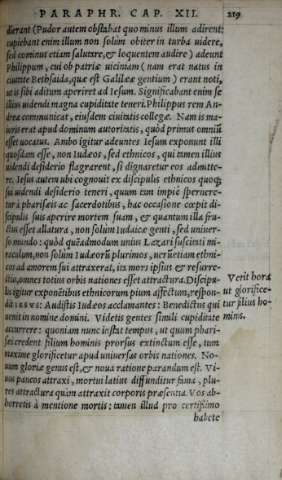 PARAPHR. CAP. XII. 219
dierant (Pudor autem obstabat quo minus illum adirent:
cupiebant enim illum non solùm obiter in turba uidere,
sed cominus etiam salutare, & loquentem audire) adeunt
Philippum, cui ob patriæ uicinitatem (nam erat natus in
ciuitate Bethsaida, quæ est Galileæ gentium) erant noti,
ut is sibi aditum aperiret ad Iesum. Significabant enim se
illius uidendi magna cupiditate teneri. Philippus rem An-
dreæ communicat, eiusdem ciuitatis collegæ. Nam is ma-
ioris erat apud dominum autoritatis, quòd primus omniũ
esset uocatus. Ambo igitur adeuntes Iesum exponunt illi
quosdam esse, non Iudæos, sed ethnicos, qui tamen illius
uidendi desiderio flagrarent, si dignaretur eos admitte-
re. Iesus autem ubi cognouit ex discipulis ethnicos quoq;
sui uidendi desiderio teneri, quum tam impiè sperneretu-
r à pharisæis ac sacerdotibus, hac occasione cœpit di-
scipulis suis aperire mortem suam, & quantum illa fru-
ctus esset allatura, non solùm Iudaicæ genti, sed uniuer-
so mundo: quòd quẽadmodum unius Lazari suscitati mi-
raculum, non solùm Iudæorũ plurimos, uerùm etiam ethni-
cos ad amorem sui attraxerat, ita mors ipsius & resurre-
ctio, omnes totius orbis nationes esset attractura. Discipu-
lis igitur exponẽtibus ethnicorum pium affectum, respon-
dit IESVS: Audistis Iudæos acclamantes: Benedictus qui
uenit in nomine domini. Videtis gentes simili cupiditate
accurrere: quoniam nunc instat tempus, ut quum phari-
sæi credent filium hominis prorsus extinctum esse, tum
maxime glorificetur apud uniuersas orbis nationes. No-
uum gloriæ genus est, & noua ratione parandum est. Vi-
uus paucos attraxi, mortui latius diffundetur fama, plu-
res attractura quàm attraxit corporis præsentia. Vos ab-
horretis à mentione mortis: tamen illud pro certissimo
habete
Venit hora
ut glorifice-
tur filius ho-
minis.